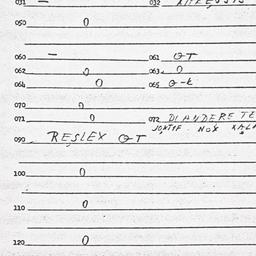 031 — 032
050 0
060 — 061 QT
062 0 063. 0
064 0 065 Q-k
070 0
071 0 072 DIANDERE TE
090 REŞLEX QT
100 0
110 0
120 0